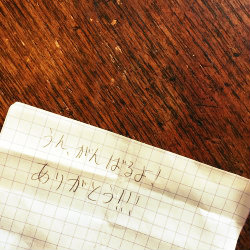 うん、がんばるよ!
ありがとう!!!